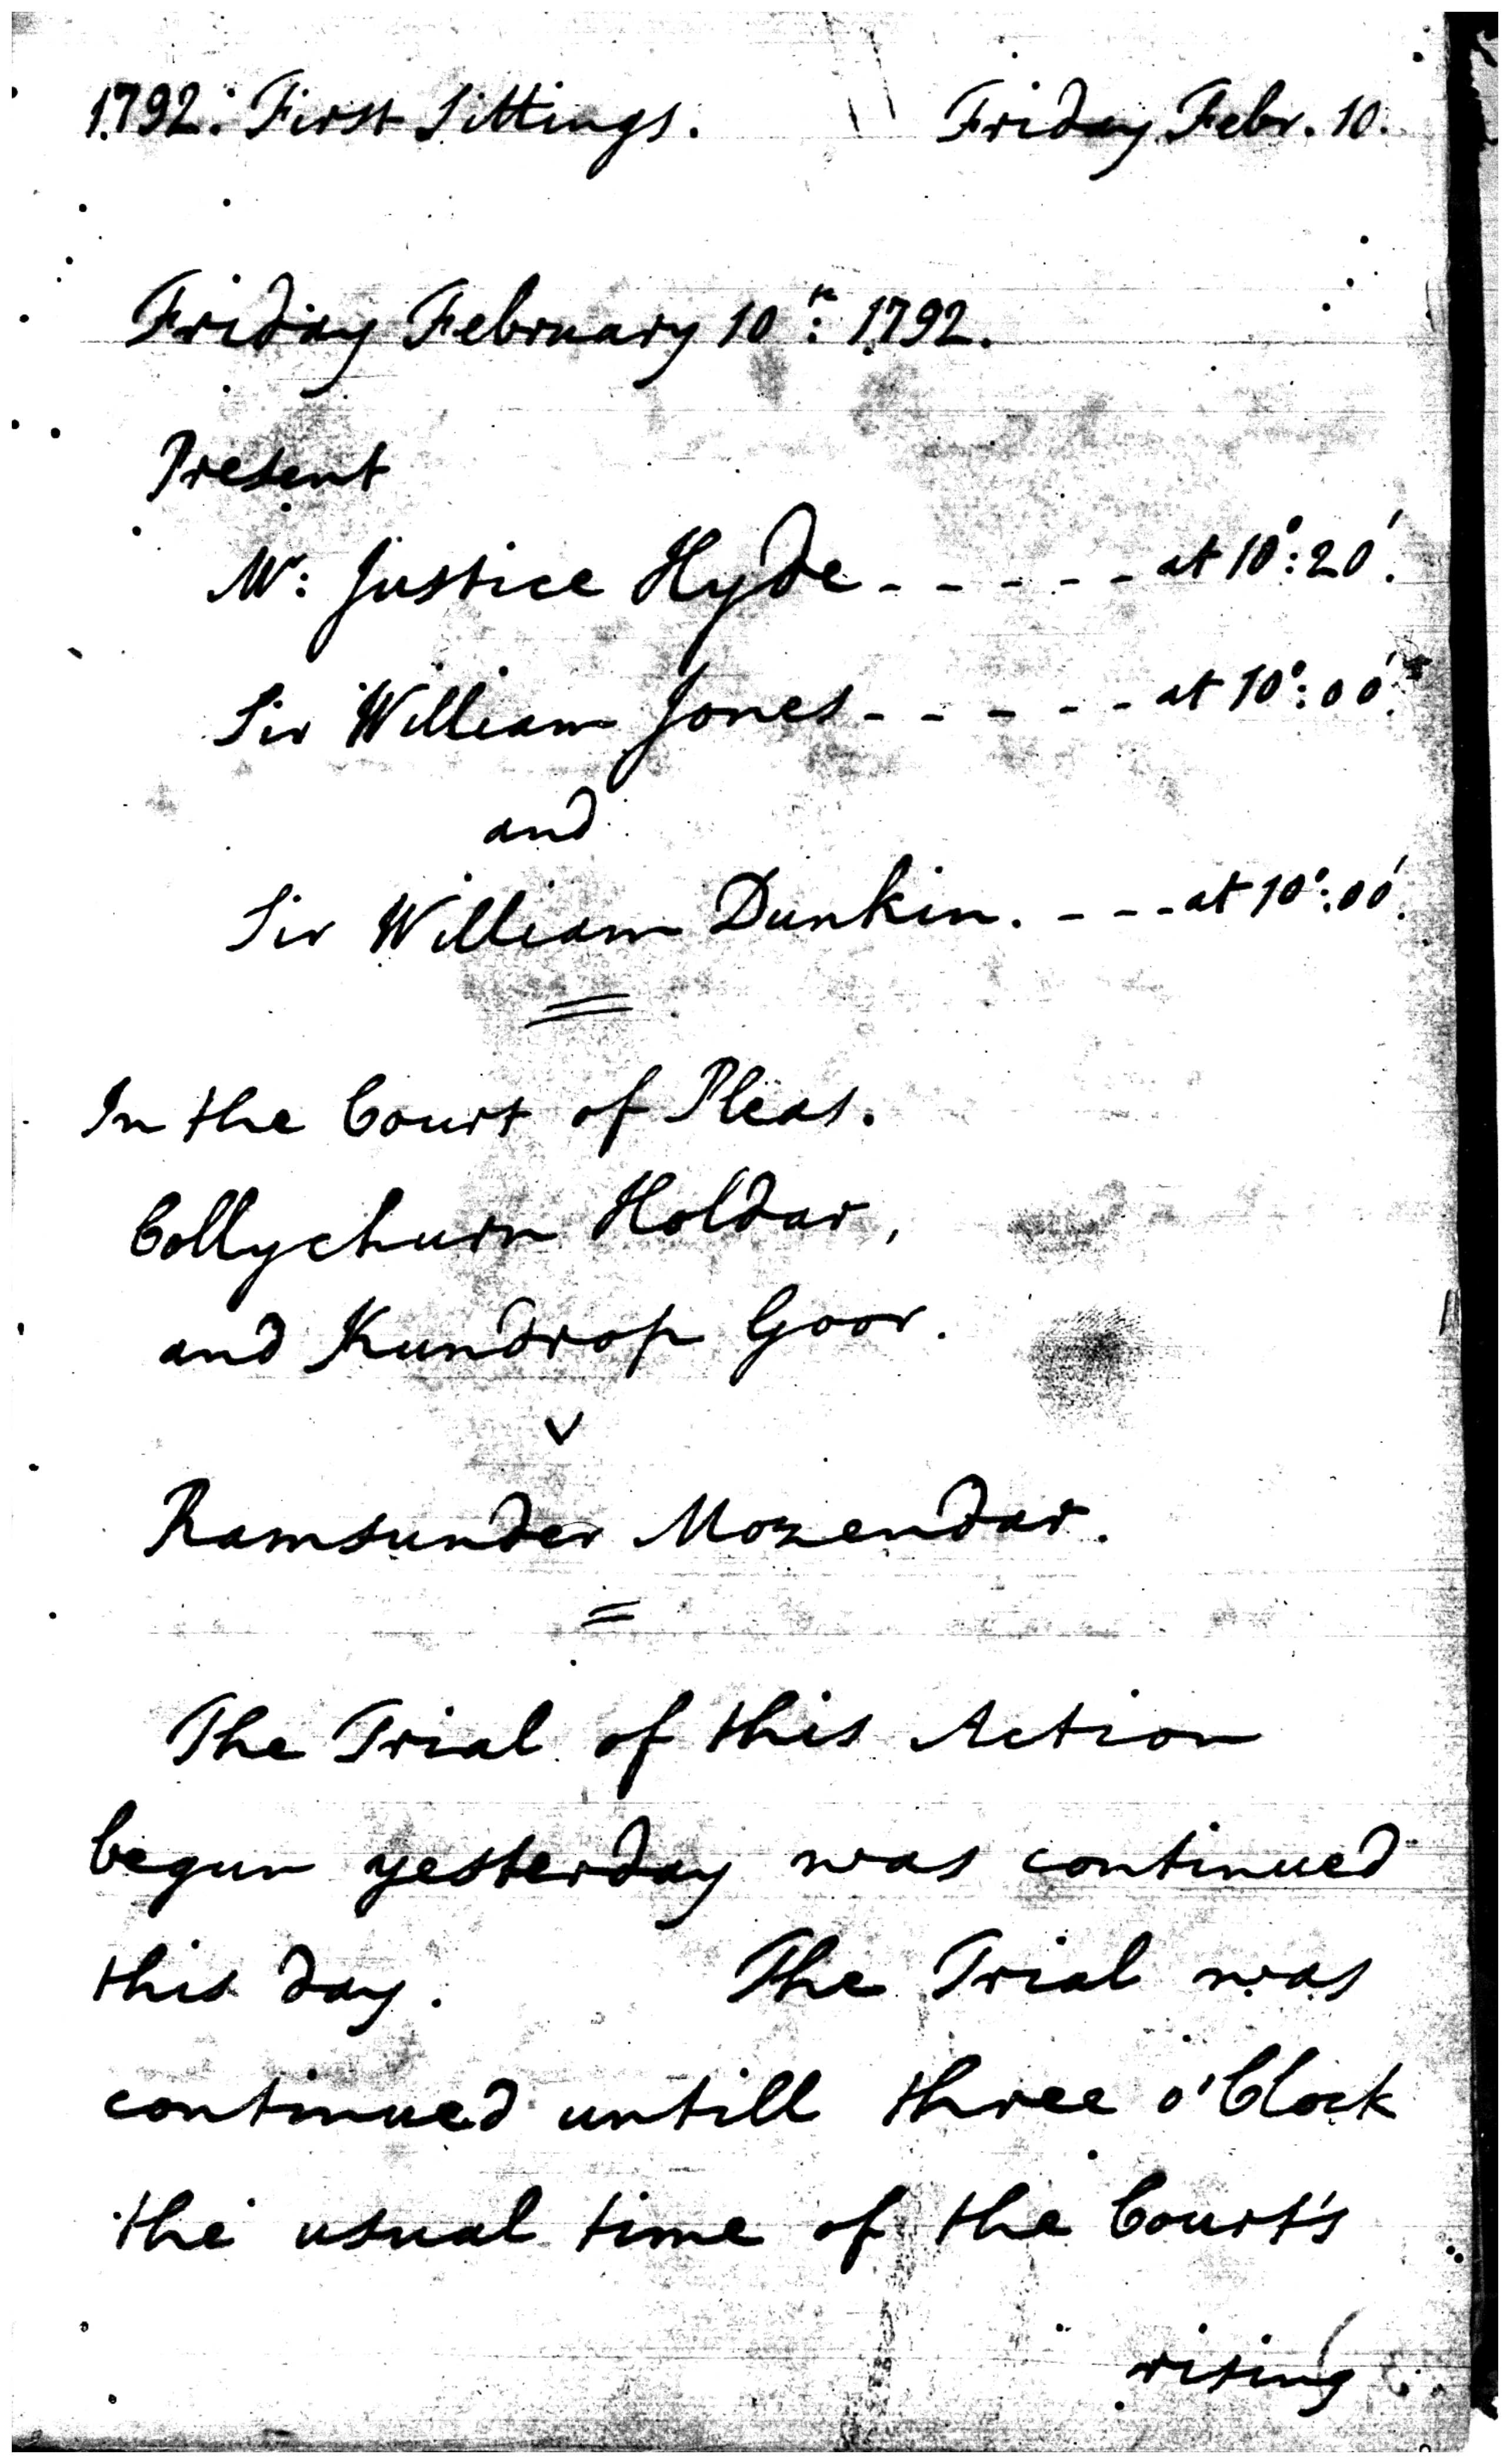 1792. First Sittings. Friday Febr. 10.
Friday February 10th: 1792.
Present
Mr: Justice Hyde - - - - - at 10°: 20'.
Sir William Jones - - - - - at 10°: 00'.
and
Sir William Dunkin. - - - at 10°: 00'.
In the Court of Pleas.
Collychurn Holdar,
and Kundrop Goor.
v
Ramsunder Mozendar.
The Trial of this Action
begun yesterday was continued
this day. The Trial was
continued untill three o'Clock
the usual time of the Court's
rising